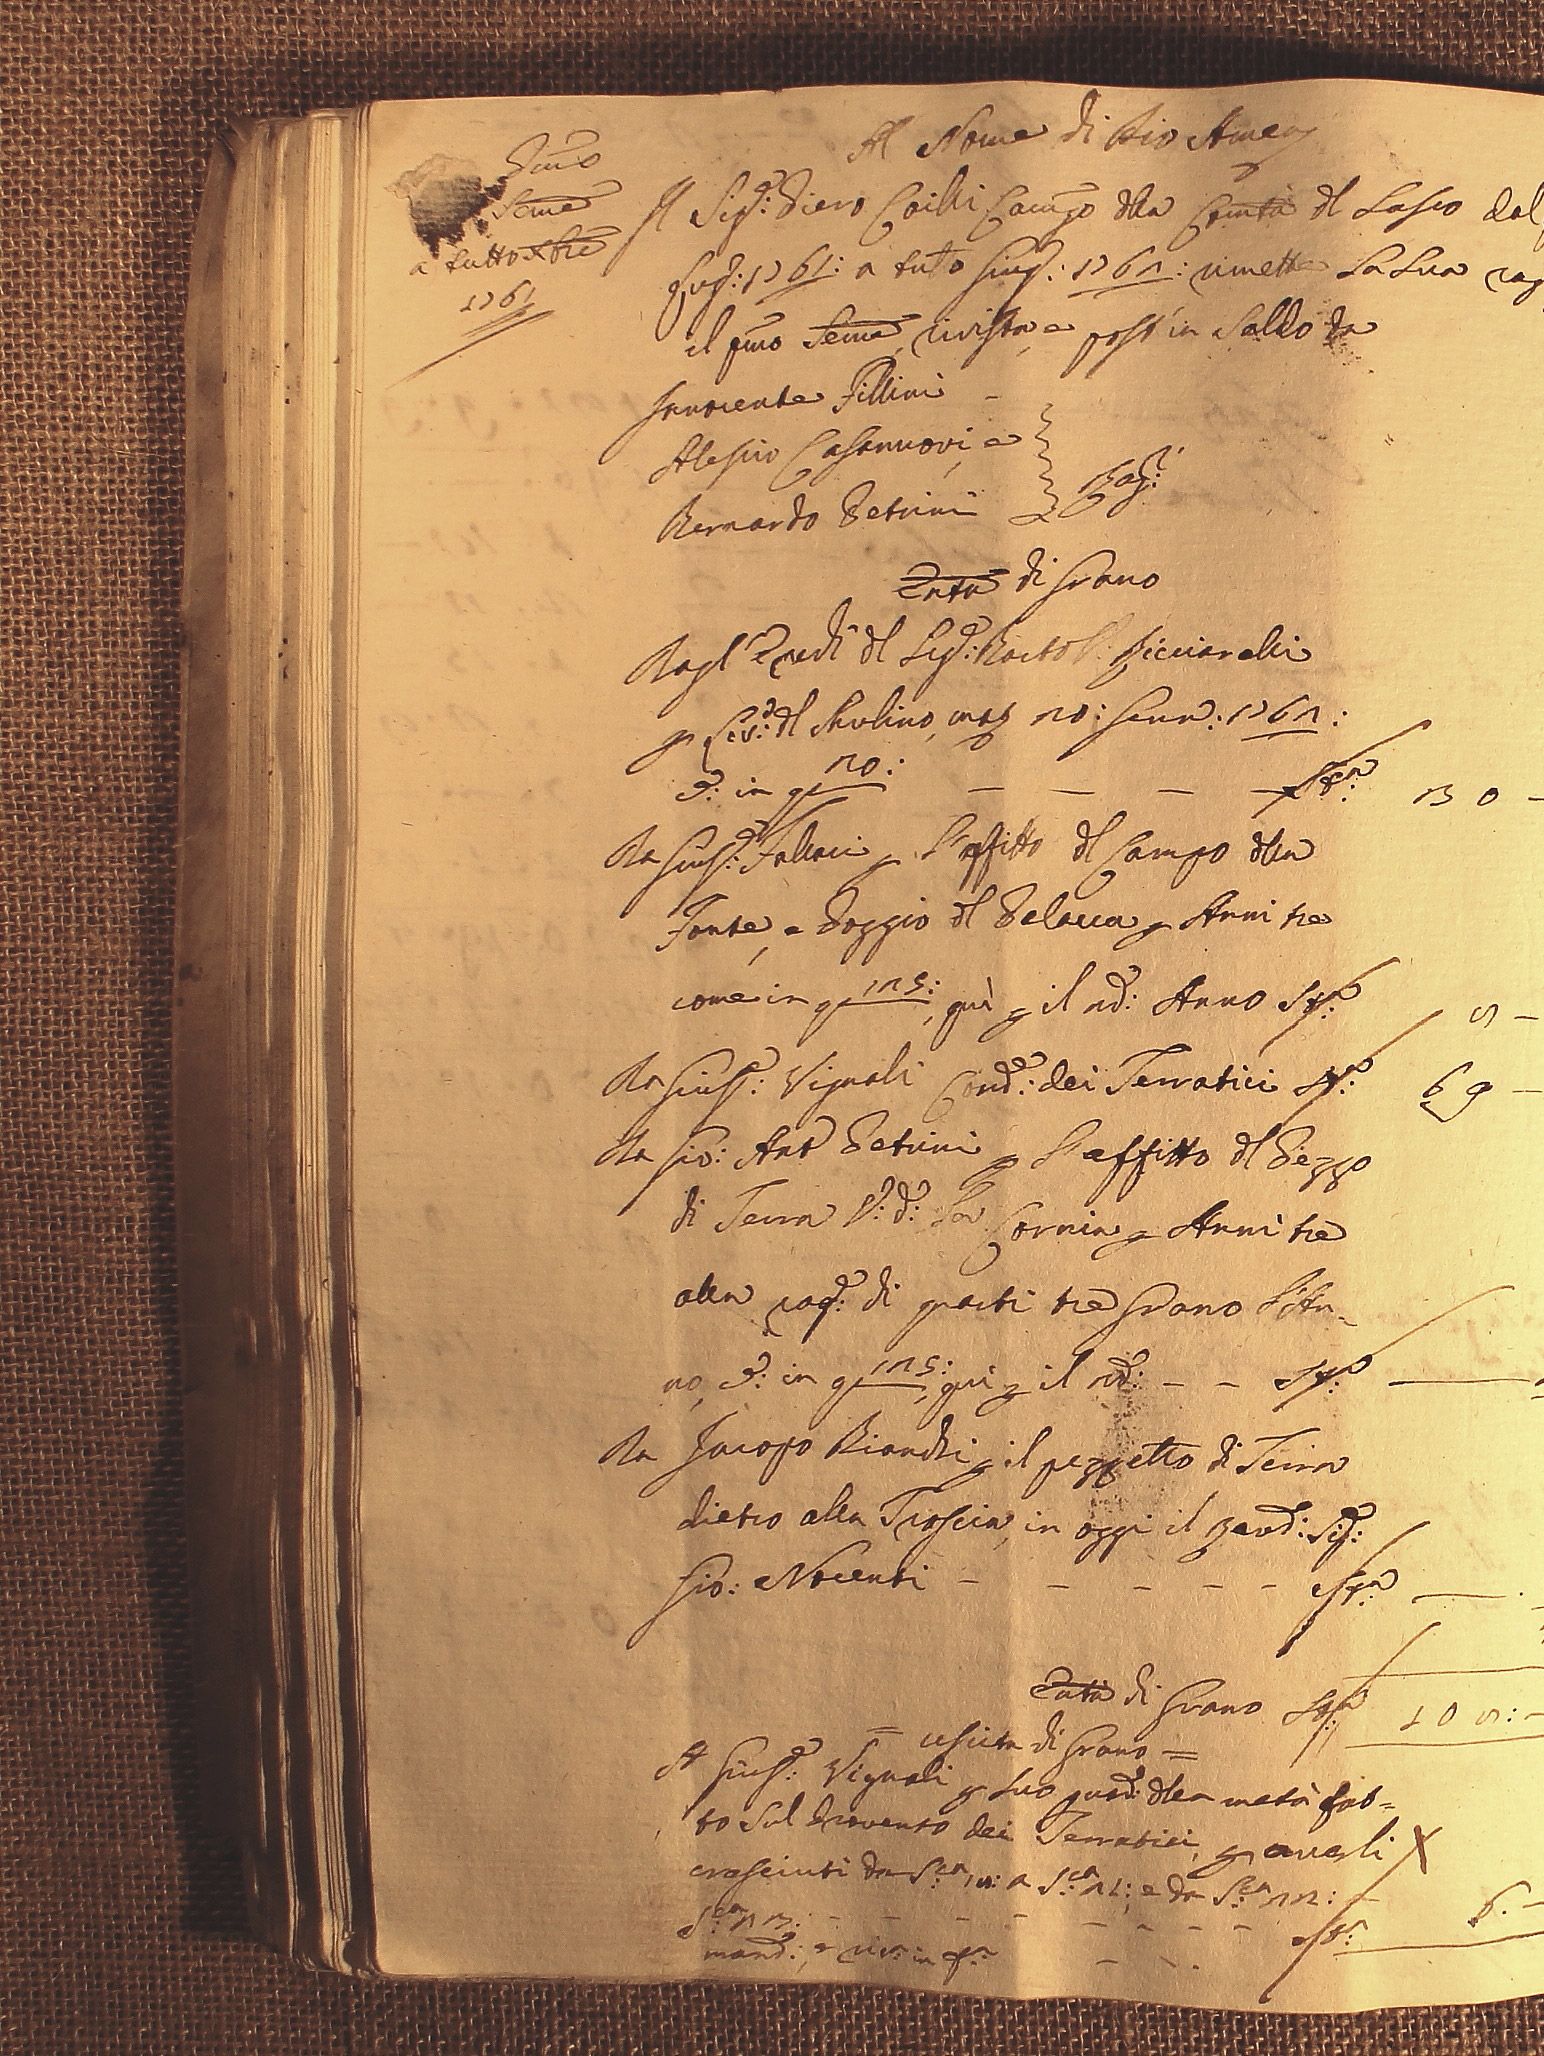 Al Nome di Dio Amen
Pmo
Seme
a tutto Xbre
1761
Il Sig.e Piero Coilli Camgo dlla Comtà dl Sasso dal p
Lug: 1761: a tutto Giug: 1762: rimette La Sua rag
il pmo Seme, rivista, e post' in Saldo da
Innocente Fillini
Alessio Casanuovi, e
Bernardo Petrini
Rag:ri
Entta di Grano
Dagl'Eredi dl Sig.e Bartol: Ricciarelli
p dl Mulino, 20: Genn: 1762:
C: in q 20: Sta: 30
Da Gius.e: Fallaci p L'affitto dl Campo dlla
Fonte, e Poggio dl Pelacca p Anni tre
come in q 125:, quì p il 2d: Anno Sta:
Da Gius.e: Vignali Cond.e: dei Terratici Sta: 69
Da Gio: Ant.o Petrini p L'affitto dl Pezzo
di Terra L:d: La Cornia p Anni tre
alla rag.e: di quarti tre Grano L'An-
no, C: in q 125:, quì p il 2d: Sta:
Da Jacopo Bianchi p il pezzetto di Terra
dietro alla Troscia, in oggi il Revd: Sig.e:
Gio: Nocenti Sta:
Entta di Grano Sta: 105:
= uscita di Grano =
A Gius.e: Vignali p suo dlla metà fat=
to Sul Provento dei Terratici, p averli
cresciuti da S.ca a S.ca 21: e da S.ca 22:
S.ca 23: Sta: 6.
mand: e in